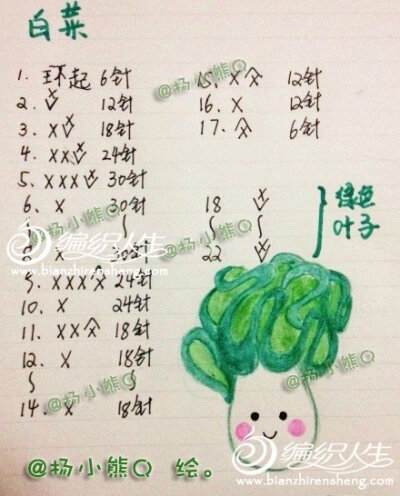 白菜
1. 环起 6针
2. V 12针
3. XV 18针
4. XXV 24针
5. XXXV 30针
6. X 30针
8. X 30针
9. XXXX 24针
10. X 24针
11. XX 18针
12. X 18针
14. X 18针
15. X 12针
16. X 12针
17. 6针
18
22
绿色
叶子
@杨小熊Q
@杨小熊Q
@杨小熊Q
@杨小熊Q
编织人生
www.bianzhirensheng.com
编织人生
www.bianzhirensheng.com
@杨小熊Q 绘。